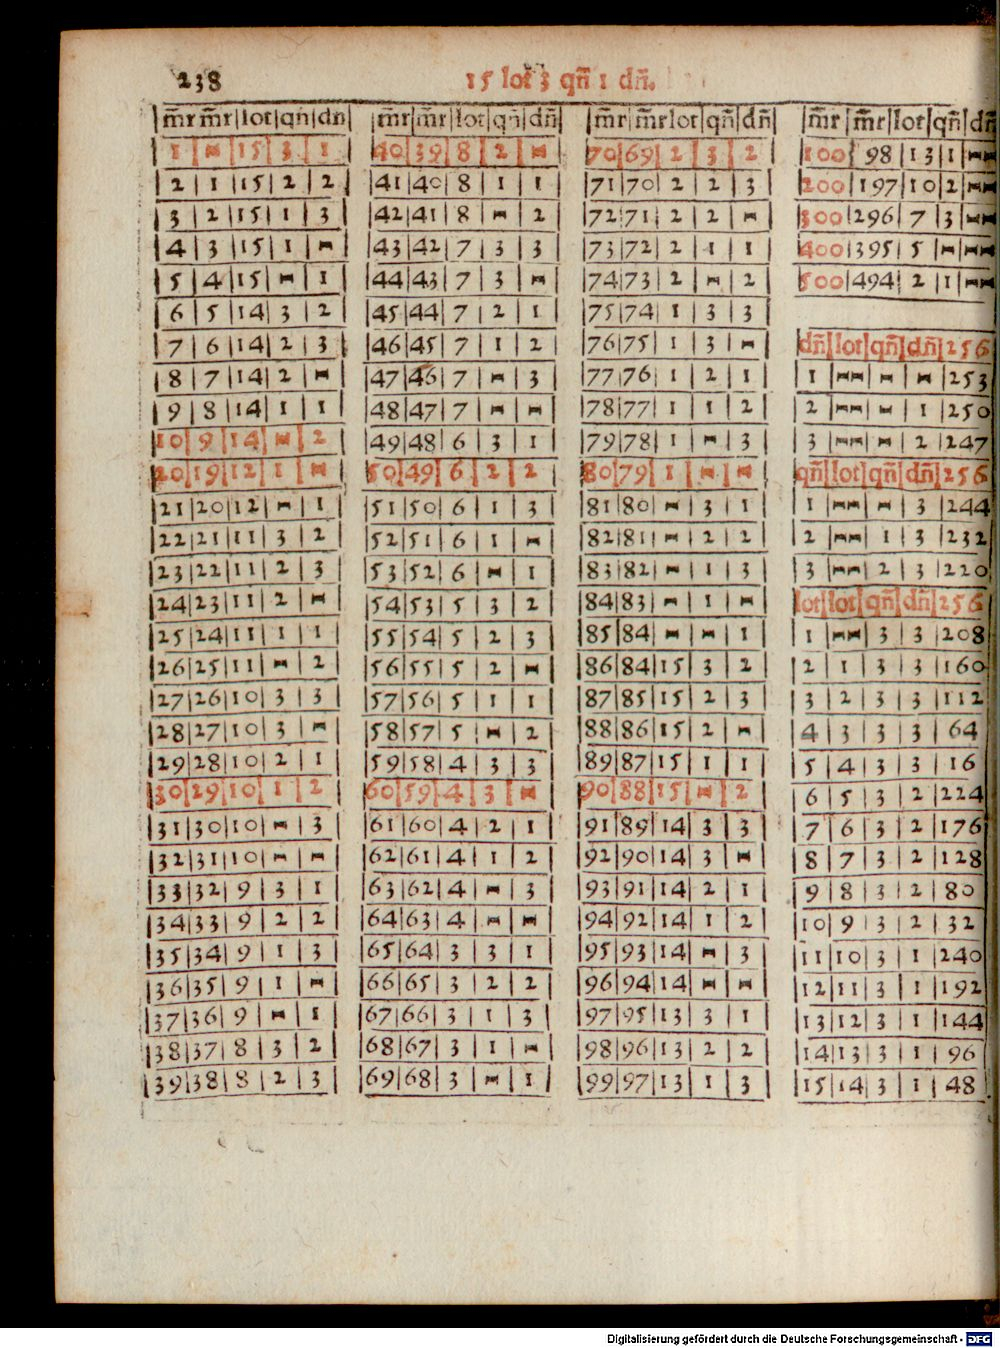 238
15 lot 3 qn̄ 1 dn̄.
m̄r|m̄r|lot|qn̄|dn̄
1|-|15|3|1
2|1|15|2|2
3|2|15|1|3
4|3|15|1|-
5|4|15|-|1
6|5|14|3|2
7|6|14|2|3
8|7|14|2|-
9|8|14|1|1
10|9|14|-|2
20|19|12|1|-
21|20|12|-|1
22|21|11|3|2
23|22|11|2|3
24|23|11|2|-
25|24|11|1|1
26|25|11|-|2
27|26|10|3|3
28|27|10|3|-
29|28|10|2|1
30|29|10|1|2
31|30|10|-|3
32|31|10|-|-
33|32|9|3|1
34|33|9|2|2
35|34|9|1|3
36|35|9|1|-
37|36|9|-|1
38|37|8|3|2
39|38|8|2|3
m̄r|m̄r|lot|qn̄|dn̄
40|39|8|2|-
41|40|8|1|1
42|41|8|-|2
43|42|7|3|3
44|43|7|3|-
45|44|7|2|1
46|45|7|1|2
47|46|7|-|3
48|47|7|-|-
49|48|6|3|1
50|49|6|2|2
51|50|6|1|3
52|51|6|1|-
53|52|6|-|1
54|53|5|3|2
55|54|5|2|3
56|55|5|2|-
57|56|5|1|1
58|57|5|-|2
59|58|4|3|3
60|59|4|3|-
61|60|4|2|1
62|61|4|1|2
63|62|4|-|3
64|63|4|-|-
65|64|3|3|1
66|65|3|2|2
67|66|3|1|3
68|67|3|1|-
69|68|3|-|1
m̄r|m̄r|lot|qn̄|dn̄
70|69|2|3|2
71|70|2|2|3
72|71|2|2|-
73|72|2|1|1
74|73|2|-|2
75|74|1|3|3
76|75|1|3|-
77|76|1|2|1
78|77|1|1|2
79|78|1|-|3
80|79|1|-|-
81|80|-|3|1
82|81|-|2|2
83|82|-|1|3
84|83|-|1|-
85|84|-|-|1
86|84|15|3|2
87|85|15|2|3
88|86|15|2|-
89|87|15|1|1
90|88|15|-|2
91|89|14|3|3
92|90|14|3|-
93|91|14|2|1
94|92|14|1|2
95|93|14|-|3
96|94|14|-|-
97|95|13|3|1
98|96|13|2|2
99|97|13|1|3
m̄r|m̄r|lot|qn̄|dn̄
100|98|13|1|--
200|197|10|2|--
300|296|7|3|--
400|395|5|-|--
500|494|2|1|--
dn̄|lot|qn̄|dn̄|256
1|--|-|-|253
2|--|-|1|250
3|--|-|2|247
qn̄|lot|qn̄|dn̄|256
1|--|-|3|244
2|--|1|3|232
3|--|2|3|220
lot|lot|qn̄|dn̄|256
1|--|3|3|208
2|1|3|3|160
3|2|3|3|112
4|3|3|3|64
5|4|3|3|16
6|5|3|2|224
7|6|3|2|176
8|7|3|2|128
9|8|3|2|80
10|9|3|2|32
11|10|3|1|240
12|11|3|1|192
13|12|3|1|144
14|13|3|1|96
15|14|3|1|48
Digitalisierung gefördert durch die Deutsche Forschungsgemeinschaft - DFG